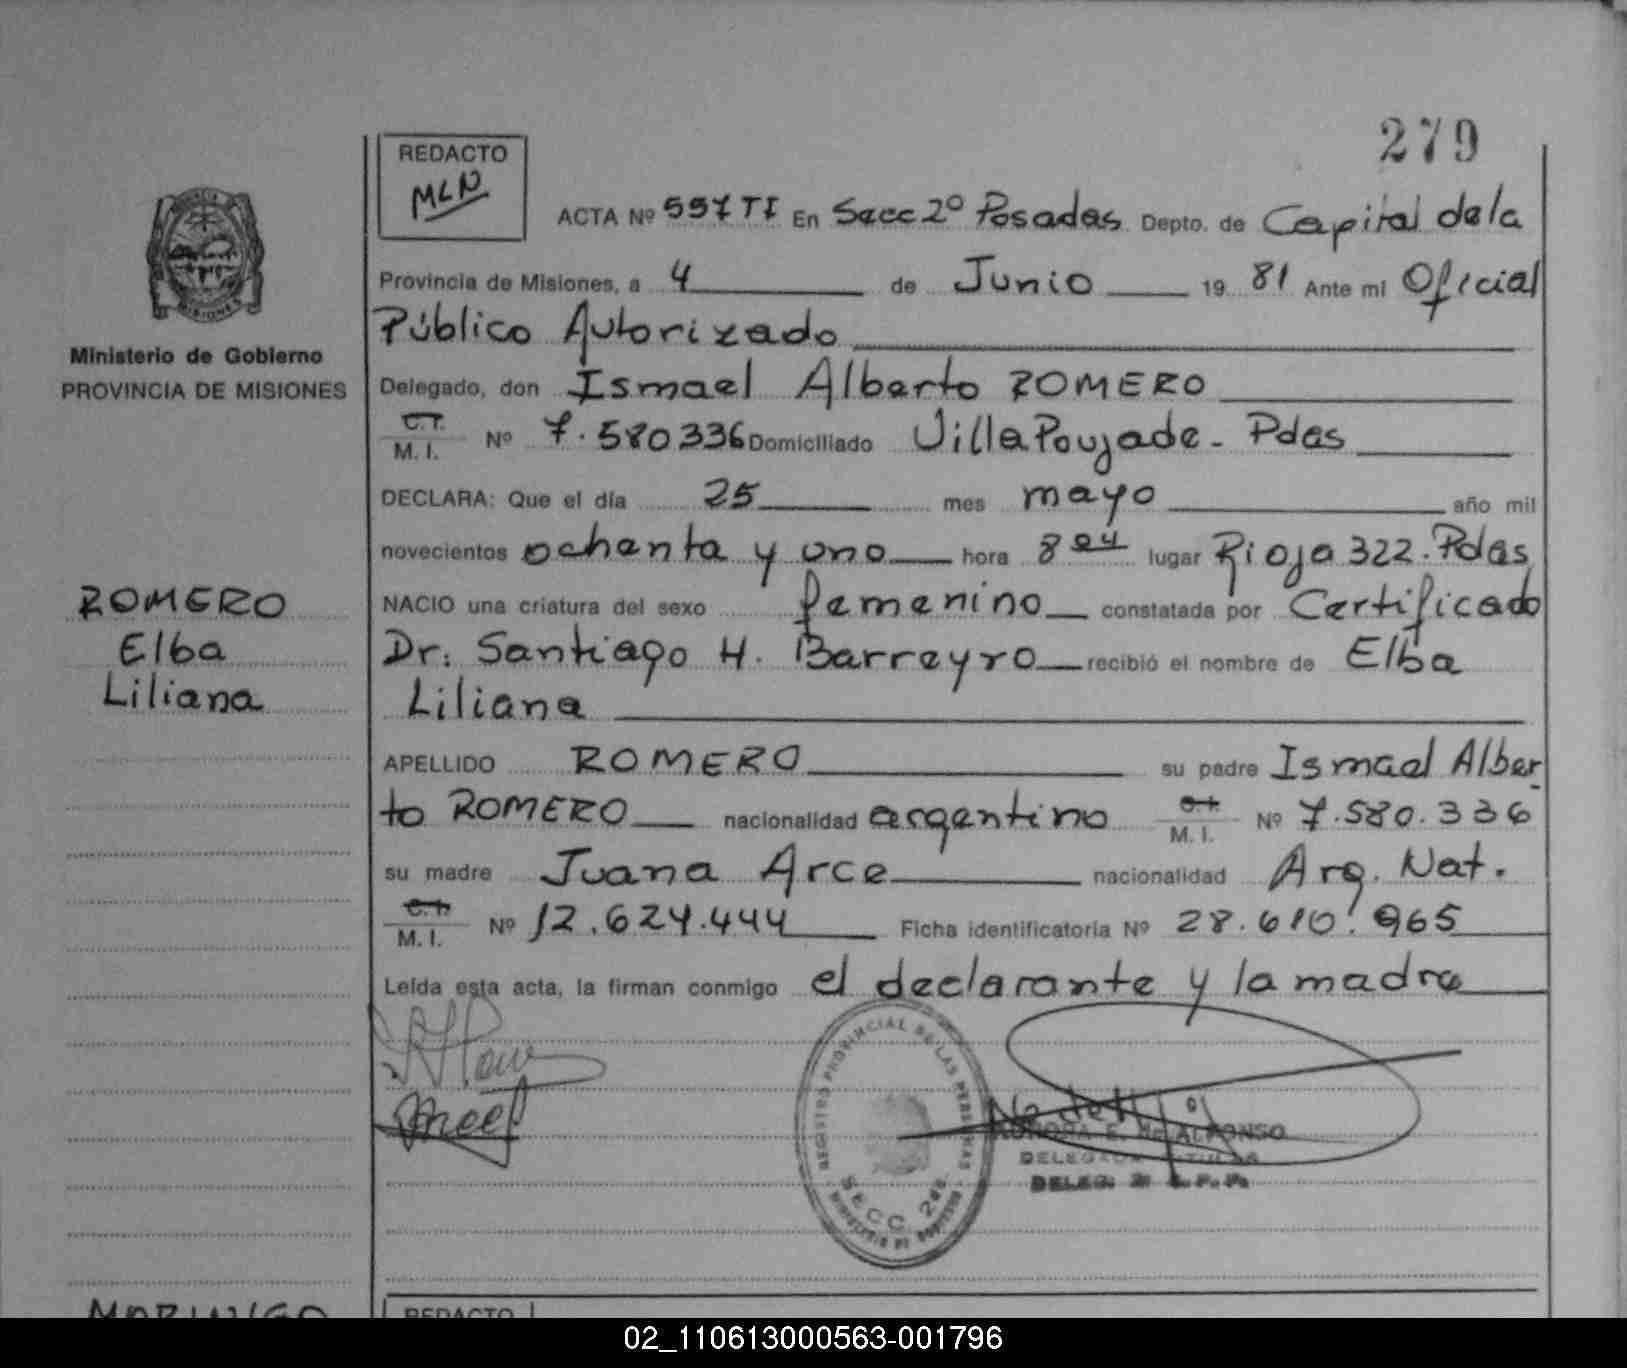 279
REDACTO
MLN
ACTA Nº 557 TI En Secc 2º Posadas Depto. de Capital de la
Provincia de Misiones, a 4 de Junio 19 81 Ante mi Oficial
Público Autorizado
Ministerio de Gobierno
PROVINCIA DE MISIONES
Delegado, don Ismael Alberto ROMERO
C.I. M. I. Nº 7.580336 Domiciliado Villa Poujade - Pdas
DECLARA: Que el día 25 mes mayo año mil
novecientos ochenta y uno hora 8 04 lugar Rioja 322. Pdas
ROMERO
Elba
Liliana
NACIO una criatura del sexo femenino constatada por Certificado
Dr. Santiago H. Barreyro recibió el nombre de Elba
Liliana
APELLIDO ROMERO su padre Ismael Alber-
to ROMERO nacionalidad argentino C.I. M. I. Nº 7.580.336
su madre Juana Arce nacionalidad Arg. Nat.
C.I. M. I. Nº 12.624.444 Ficha identificatoria Nº 28.610.965
Leída esta acta, la firman conmigo el declarante y la madre
REGISTRO PROVINCIAL DE LAS PERSONAS
SECC. 2da.
MINISTERIO DE GOBIERNO
REDACTO
02_110613000563-001796